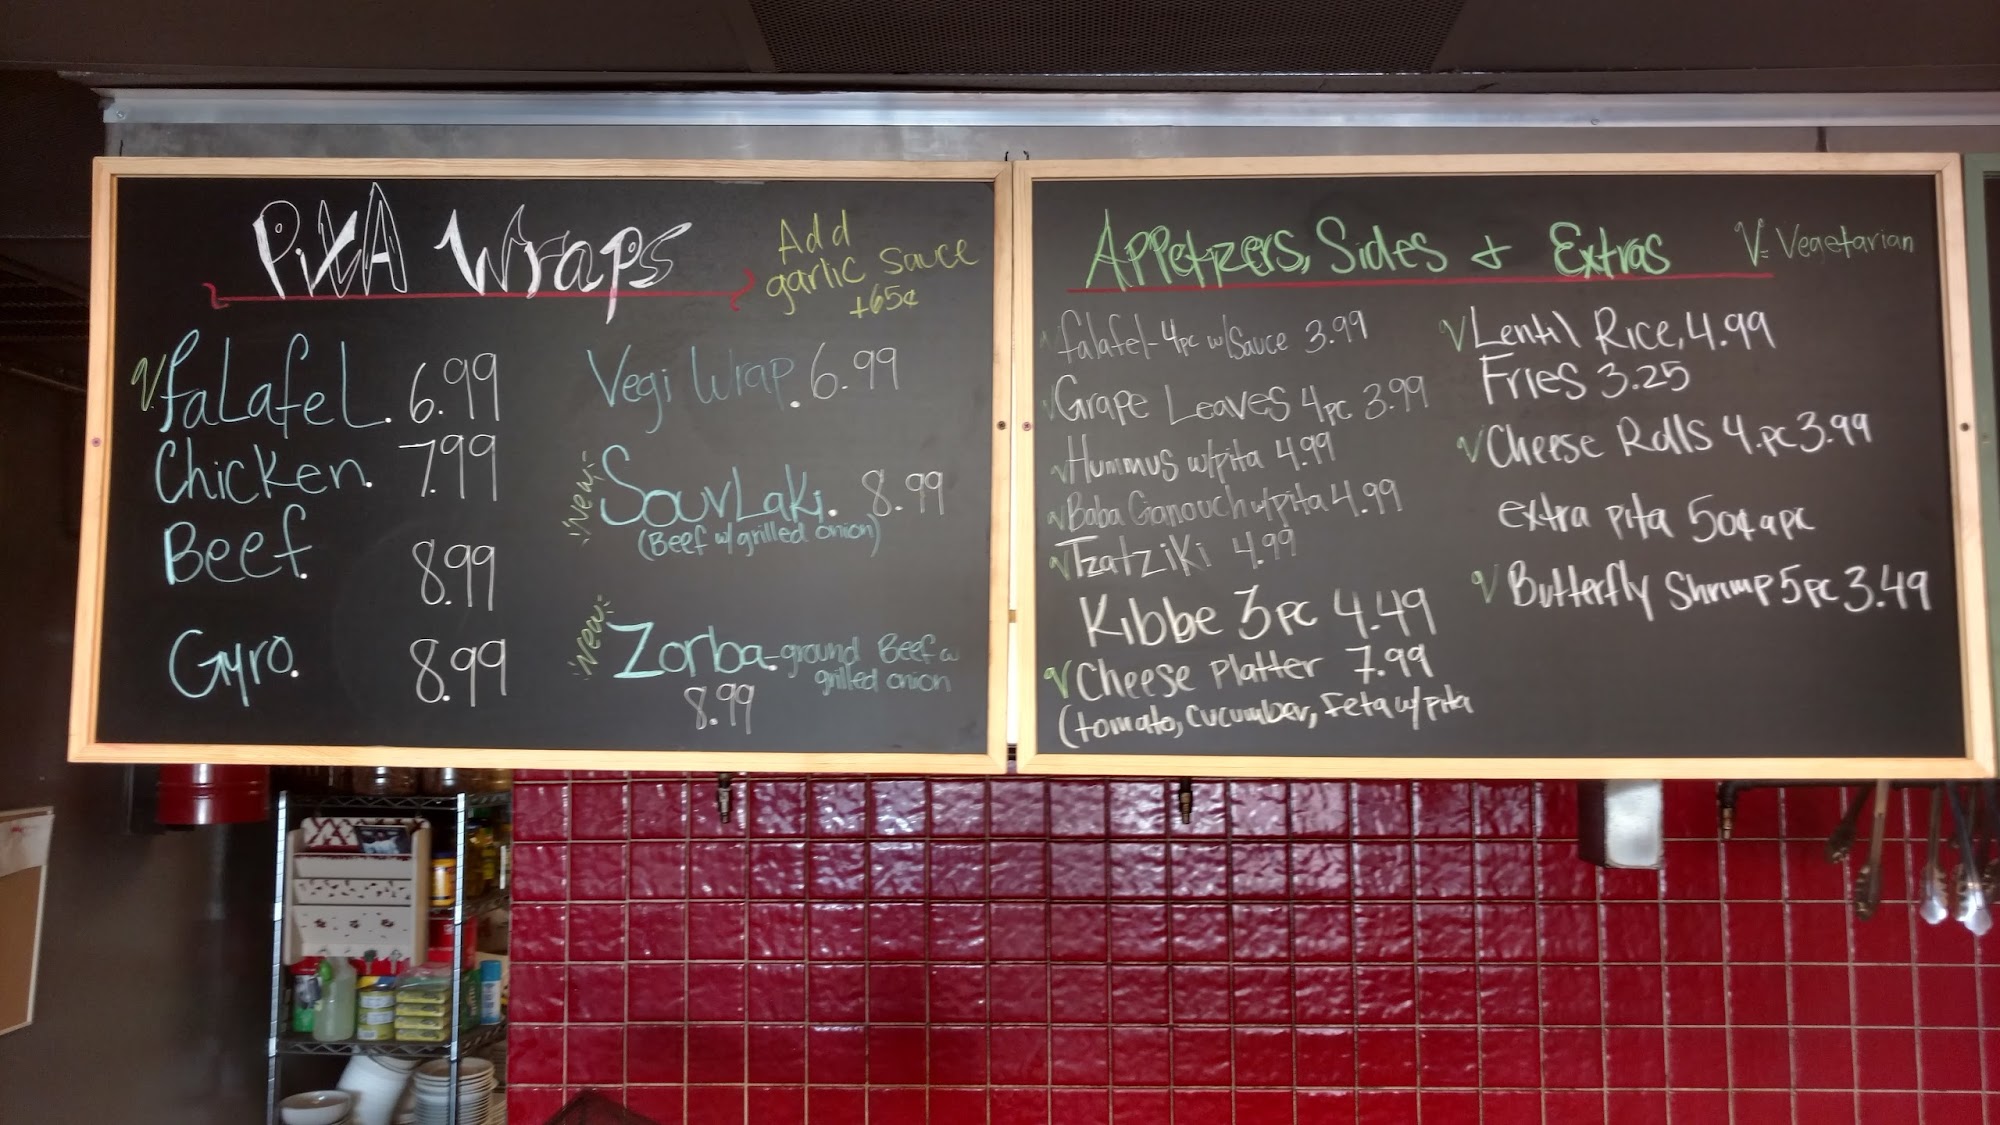 PitA Wraps
Add
garlic sauce
+65¢
V. Falafel. 6.99
Chicken. 7.99
Beef. 8.99
Gyro. 8.99
Vegi Wrap. 6.99
"New" Souvlaki. 8.99
(Beef w/ grilled onion)
"New" Zorba - ground Beef w
grilled onion
8.99
Appetizers, Sides & Extras V= Vegetarian
V falafel - 4pc w/Sauce 3.99
V Grape Leaves 4pc 3.99
V Hummus w/pita 4.99
V Baba Ganouch w/pita 4.99
V Tzatziki 4.99
Kibbe 3pc 4.49
V Cheese Platter 7.99
(tomato, cucumber, Feta w/ pita
V Lentil Rice, 4.99
Fries 3.25
V Cheese Rolls 4.pc 3.99
extra pita 50¢ a pc
V Butterfly Shrimp 5pc 3.49